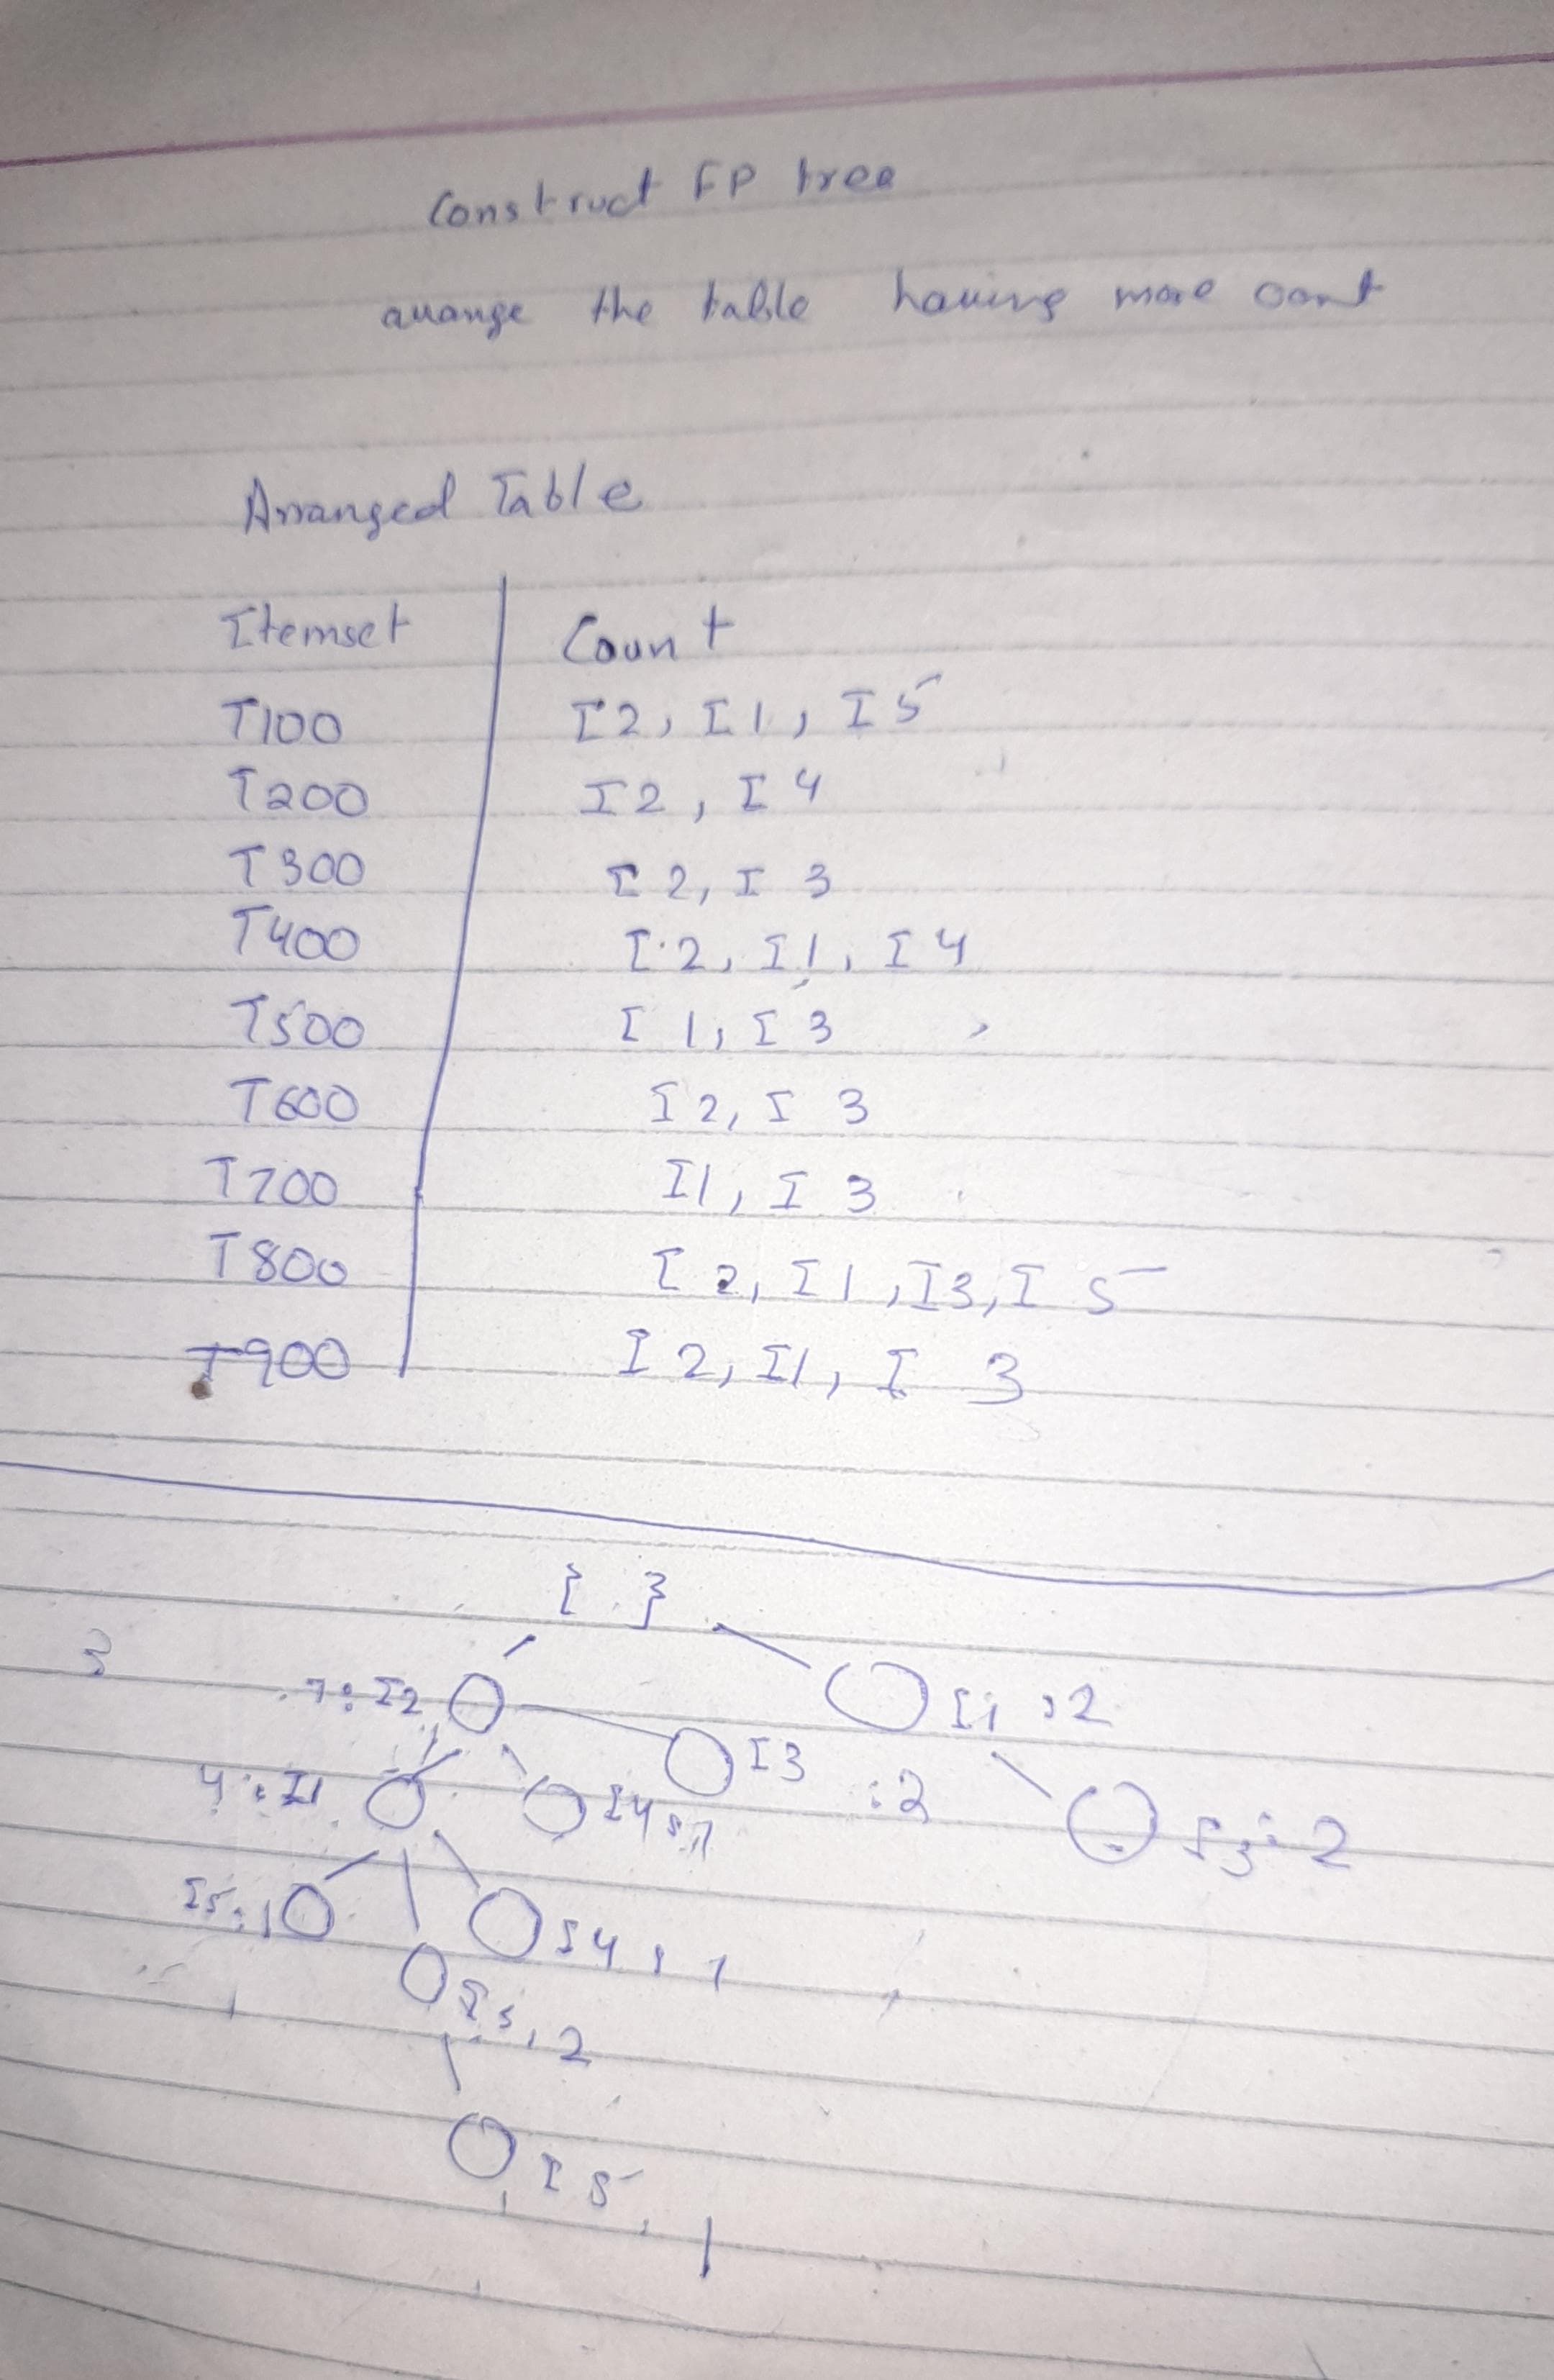 Construct FP tree
arrange the table having more count
Arranged Table
Itemset Count
T100 I2, I1, I5
T200 I2, I4
T300 I2, I3
T400 I2, I1, I4
T500 I1, I3
T600 I2, I3
T700 I1, I3
T800 I2, I1, I3, I5
T900 I2, I1, I3
{ }
3
7:I2 I1:2
I3:2
4:I1 I4:1 I3:2
I5:1 I4:1
I3,2
I5,1